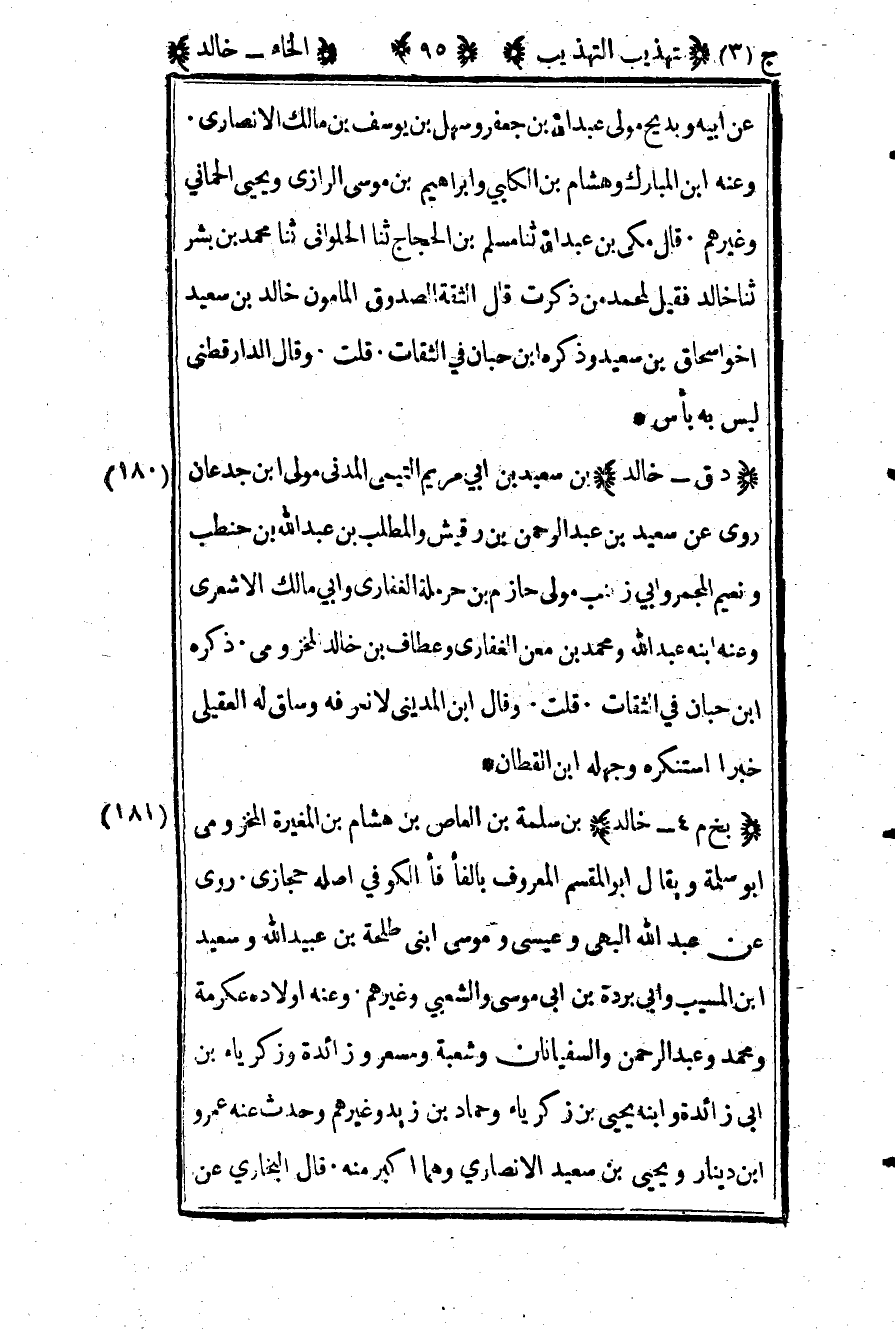 ج (٣) ﴿ تهذيب التهذيب ﴾ ﴿ ٩٥ ﴾ ﴿ الخاء ـ خالد ﴾
عن ابيه وبديح مولى عبدالله بن جعفر وسهل بن يوسف بن مالك الانصارى ٠
وعنه ابن المبارك وهشام بن الكلبي وابراهيم بن موسى الرازى ويحيى الحماني
وغيرهم ٠ قال مكى بن عبدالله ثنا مسلم بن الحجاج ثنا الحلوانى ثنا محمد بن بشر
ثنا خالد فقيل لمحمد من ذكرت قال الثقة الصدوق المامون خالد بن سعيد
اخو اسحاق بن سعيد وذكره ابن حبان في الثقات ٠ قلت ٠ وقال الدارقطنى
ليس به بأس *
﴿ د ق ـ خالد ﴾ بن سعيد بن ابي مريم التيمى المدنى مولى ابن جدعان (١٨٠)
روى عن سعيد بن عبدالرحمن بن رقيش والمطلب بن عبدالله بن حنطب
ونعيم المجمر وابي زينب مولى حازم بن حرملة الغفارى وابي مالك الاشعرى
وعنه ابنه عبد الله ومحمد بن معن الغفارى وعطاف بن خالد المخزومى ٠ ذكره
ابن حبان في الثقات ٠ قلت ٠ وقال ابن المدينى لا نعرفه وساق له العقيلى
خبرا استنكره وجهله ابن القطان *
﴿ بخ م ٤ ـ خالد ﴾ بن سلمة بن العاص بن هشام بن المغيرة المخزومى (١٨١)
ابو سلمة ويقال ابو المقسم المعروف بالفأفأ الكوفي اصله حجازى ٠ روى
عن عبد الله البهى وعيسى وموسى ابنى طلحة بن عبيدالله وسعيد
ابن المسيب وابي بردة بن ابى موسى والشعبي وغيرهم ٠ وعنه اولاده عكرمة
ومحمد وعبدالرحمن والسفيانان وشعبة ومسعر وزائدة وزكرياء بن
ابى زائدة وابنه يحيى بن زكرياء وحماد بن زيد وغيرهم وحدث عنه عمرو
ابن دينار ويحيى بن سعيد الانصاري وهما اكبر منه ٠ قال البخاري عن